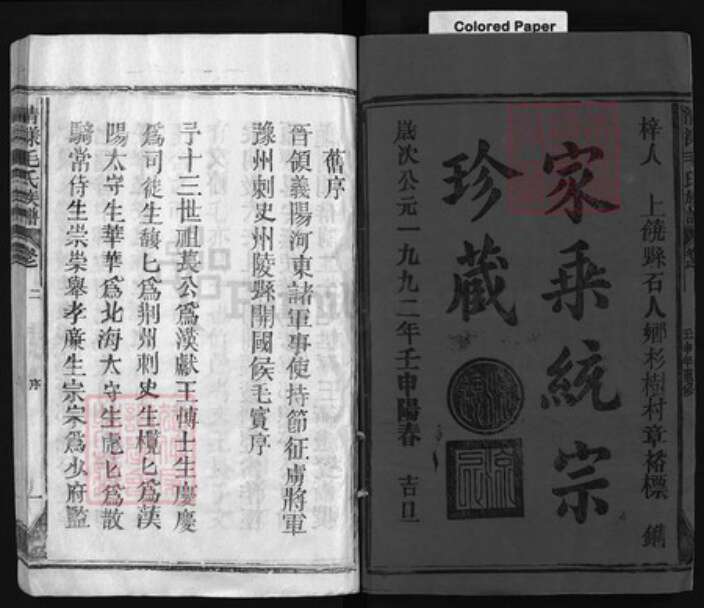 Colored Paper
梓人 上饒縣石人鄉杉樹村章裕標 鐫
家乘統宗
珍藏
歲次公元一九九二年壬申陽春 吉旦
舊序
晉領義陽河東諸軍事使持節征虜將軍
豫州刺史州陵縣開國侯毛寶序
予十三世祖萇公為漢獻王博士生慶慶
為司徒生馥匕為荊州刺史生欖匕為漢
陽太守生華華為北海太守生彪匕為散
騎常侍生崇崇舉孝廉生宗宗為少府監
清漾毛氏族譜 卷之 二 序 一